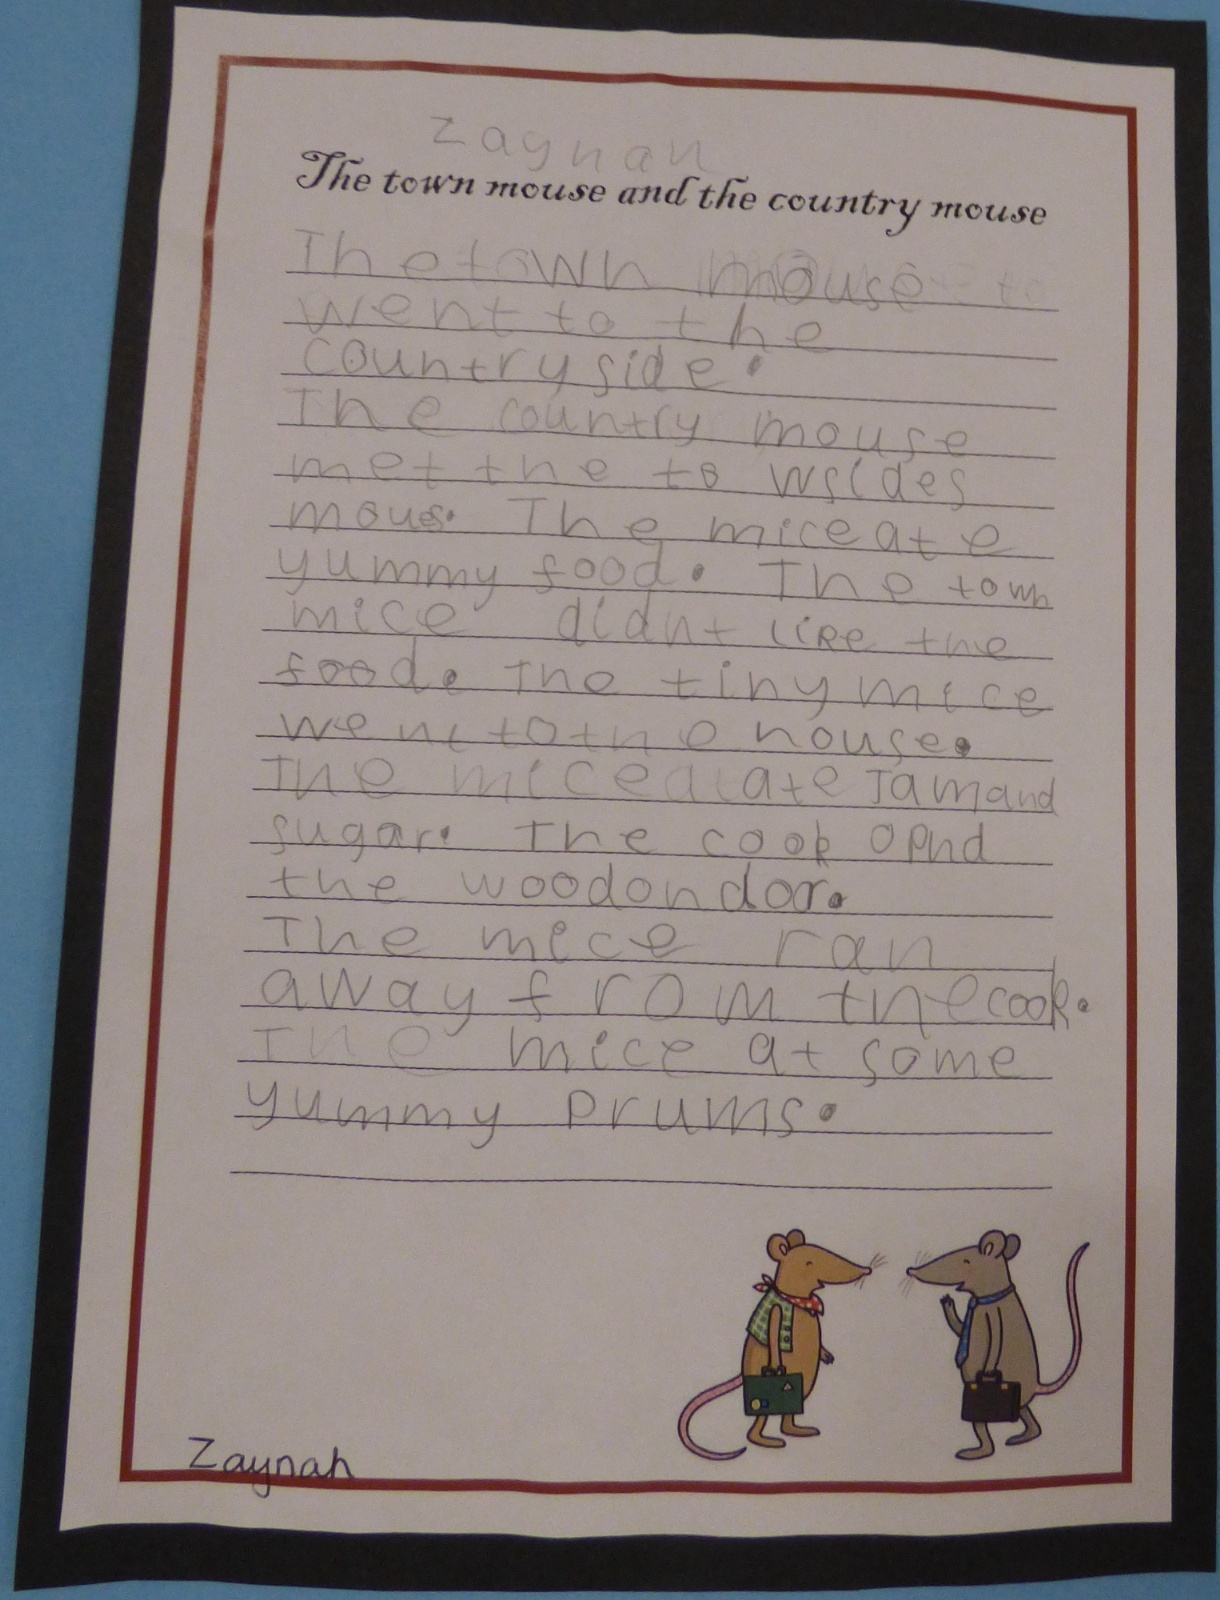 zaynah
The town mouse and the country mouse
The town mouse
went to the
countryside.
The country mouse
met the to wsides
mous. The mice ate
yummy food. The town
mice didnt like the
food. The tiny mice
went to the house.
The mice ate Jam and
sugar. The cook opnd
the woodon dor.
The mice ran
away from the cook.
The mice at some
yummy prums.
Zaynah